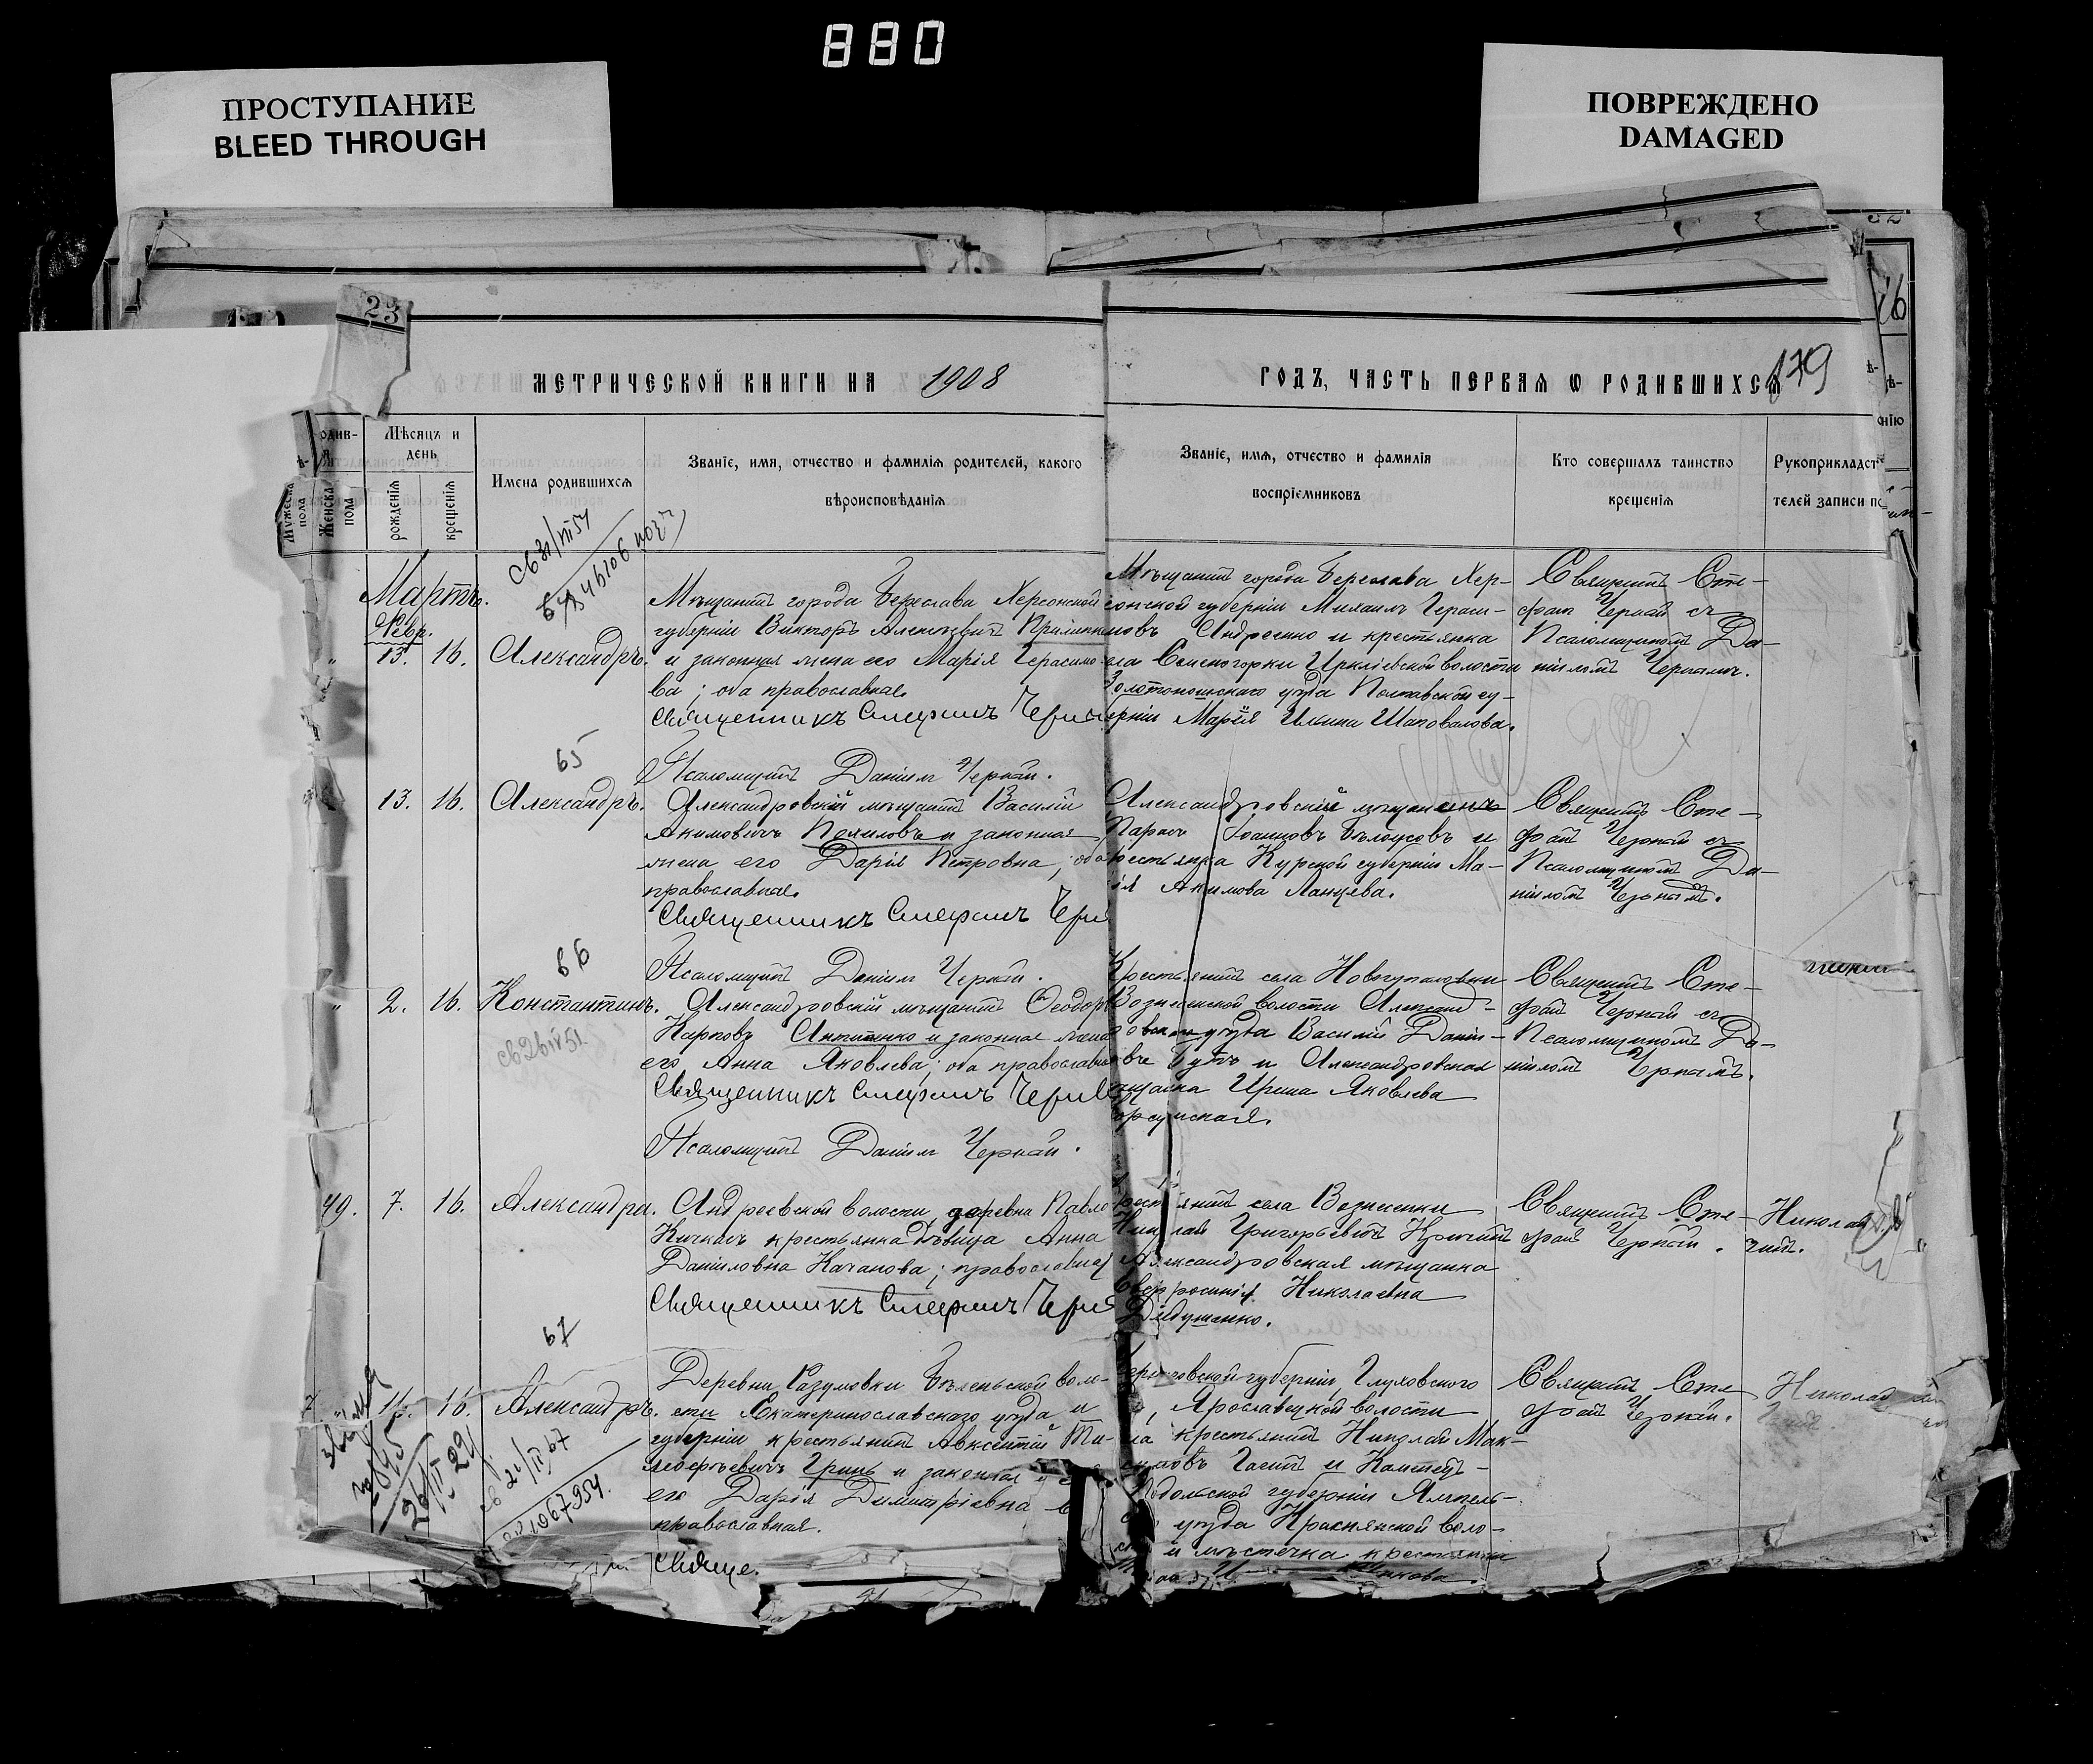 880
ПРОСТУПАНИЕ
BLEED THROUGH
ПОВРЕЖДЕНО
DAMAGED
23
МЕТРИЧЕСКОЙ КНИГИ НА 1908
ГОДЪ, ЧАСТЬ ПЕРВАЯ Ѡ РОДИВШИХСЯ
179
Мѣсяцъ и
день
Мужеска
пола
Женска
пола
рожденія
крещенія
Имена родившихся
Званіе, имя, отчество и фамилія родителей, какого
вѣроисповѣданія
Званіе, имя, отчество и фамилія
воспріемниковъ
Кто совершалъ таинство
крещенія
Рукоприкладст
телей записи по
Мартъ.
Февр.
13. 16. Александръ.
Мѣщанинъ города Береслава Херсонской
губерніи Викторъ Алексѣевичъ
и законная жена его Марія Герасимо-
ва; оба православные.
Священникъ Стефанъ Черный
Псаломщикъ Даніилъ Черный.
Мѣщанинъ города Береслава Хер-
сонской губерніи Михаилъ Гераси-
мовъ Андреенко и крестьянка
села Семеногорки Ирклѣевской волости
Золотоношскаго уѣзда Полтавской гу-
берніи Марія Ильина Шаповалова.
Священникъ Сте-
фанъ Черный съ
Псаломщикомъ Да-
ніиломъ Чернымъ.
65
13. 16. Александръ.
Александровскій мѣщанинъ Василій
Акимовичъ Похиловъ и законная
жена его Дарія Петровна; оба
православные.
Священникъ Стефанъ Черный
Псаломщикъ Даніилъ Черный.
Александровскій мѣщанинъ
Іоанновъ Бѣлоусовъ и
крестьянка Курской губерніи Ма-
рія Акимова Ланцева.
Священникъ Сте-
фанъ Черный съ
Псаломщикомъ Да-
ніиломъ Чернымъ.
66
2. 16. Константинъ.
Александровскій мѣщанинъ Ѳеодоръ
Карповъ Антипенко и законная жена
его Анна Яковлева; оба православные
Священникъ Стефанъ Черный
Псаломщикъ Даніилъ Черный.
Крестьянинъ села Новогупаловки
Вознесенской волости Александ-
ровскаго уѣзда Василій Даніи-
ловъ Бутъ и Александровская
мѣщанка Ирина Яковлева
Священникъ Сте-
фанъ Черный съ
Псаломщикомъ Да-
ніиломъ Чернымъ.
49. 7. 16. Александра.
Андреевской волости, деревни Павло-
Кичкасъ крестьянка дѣвица Анна
Даниловна Качанова; православная
Священникъ Стефанъ Черный
Крестьянинъ села Вознесенки
Николай Григорьевичъ
Александровская мѣщанка
Евфросинія Николаевна
Дядушенко.
Священникъ Сте-
фанъ Черный.
Николай
67
11. 16. Александръ.
Деревни Разумовки Бѣленьской воло-
сти Екатеринославскаго уѣзда и
губерніи крестьянинъ Авксентій Ти-
моѳеевичъ Гринь и законная
его Дарія Димитріевна
православная.
Свяще.
Черниговской губерніи, Глуховского
Ярославецкой волости
крестьянинъ Николай Мак-
симовъ и Каменец-
Подольской губерніи Ямполь-
уѣзда Краснянской воло-
и мѣстечка крестьянка
Священникъ Сте-
фанъ Черный.
Николай